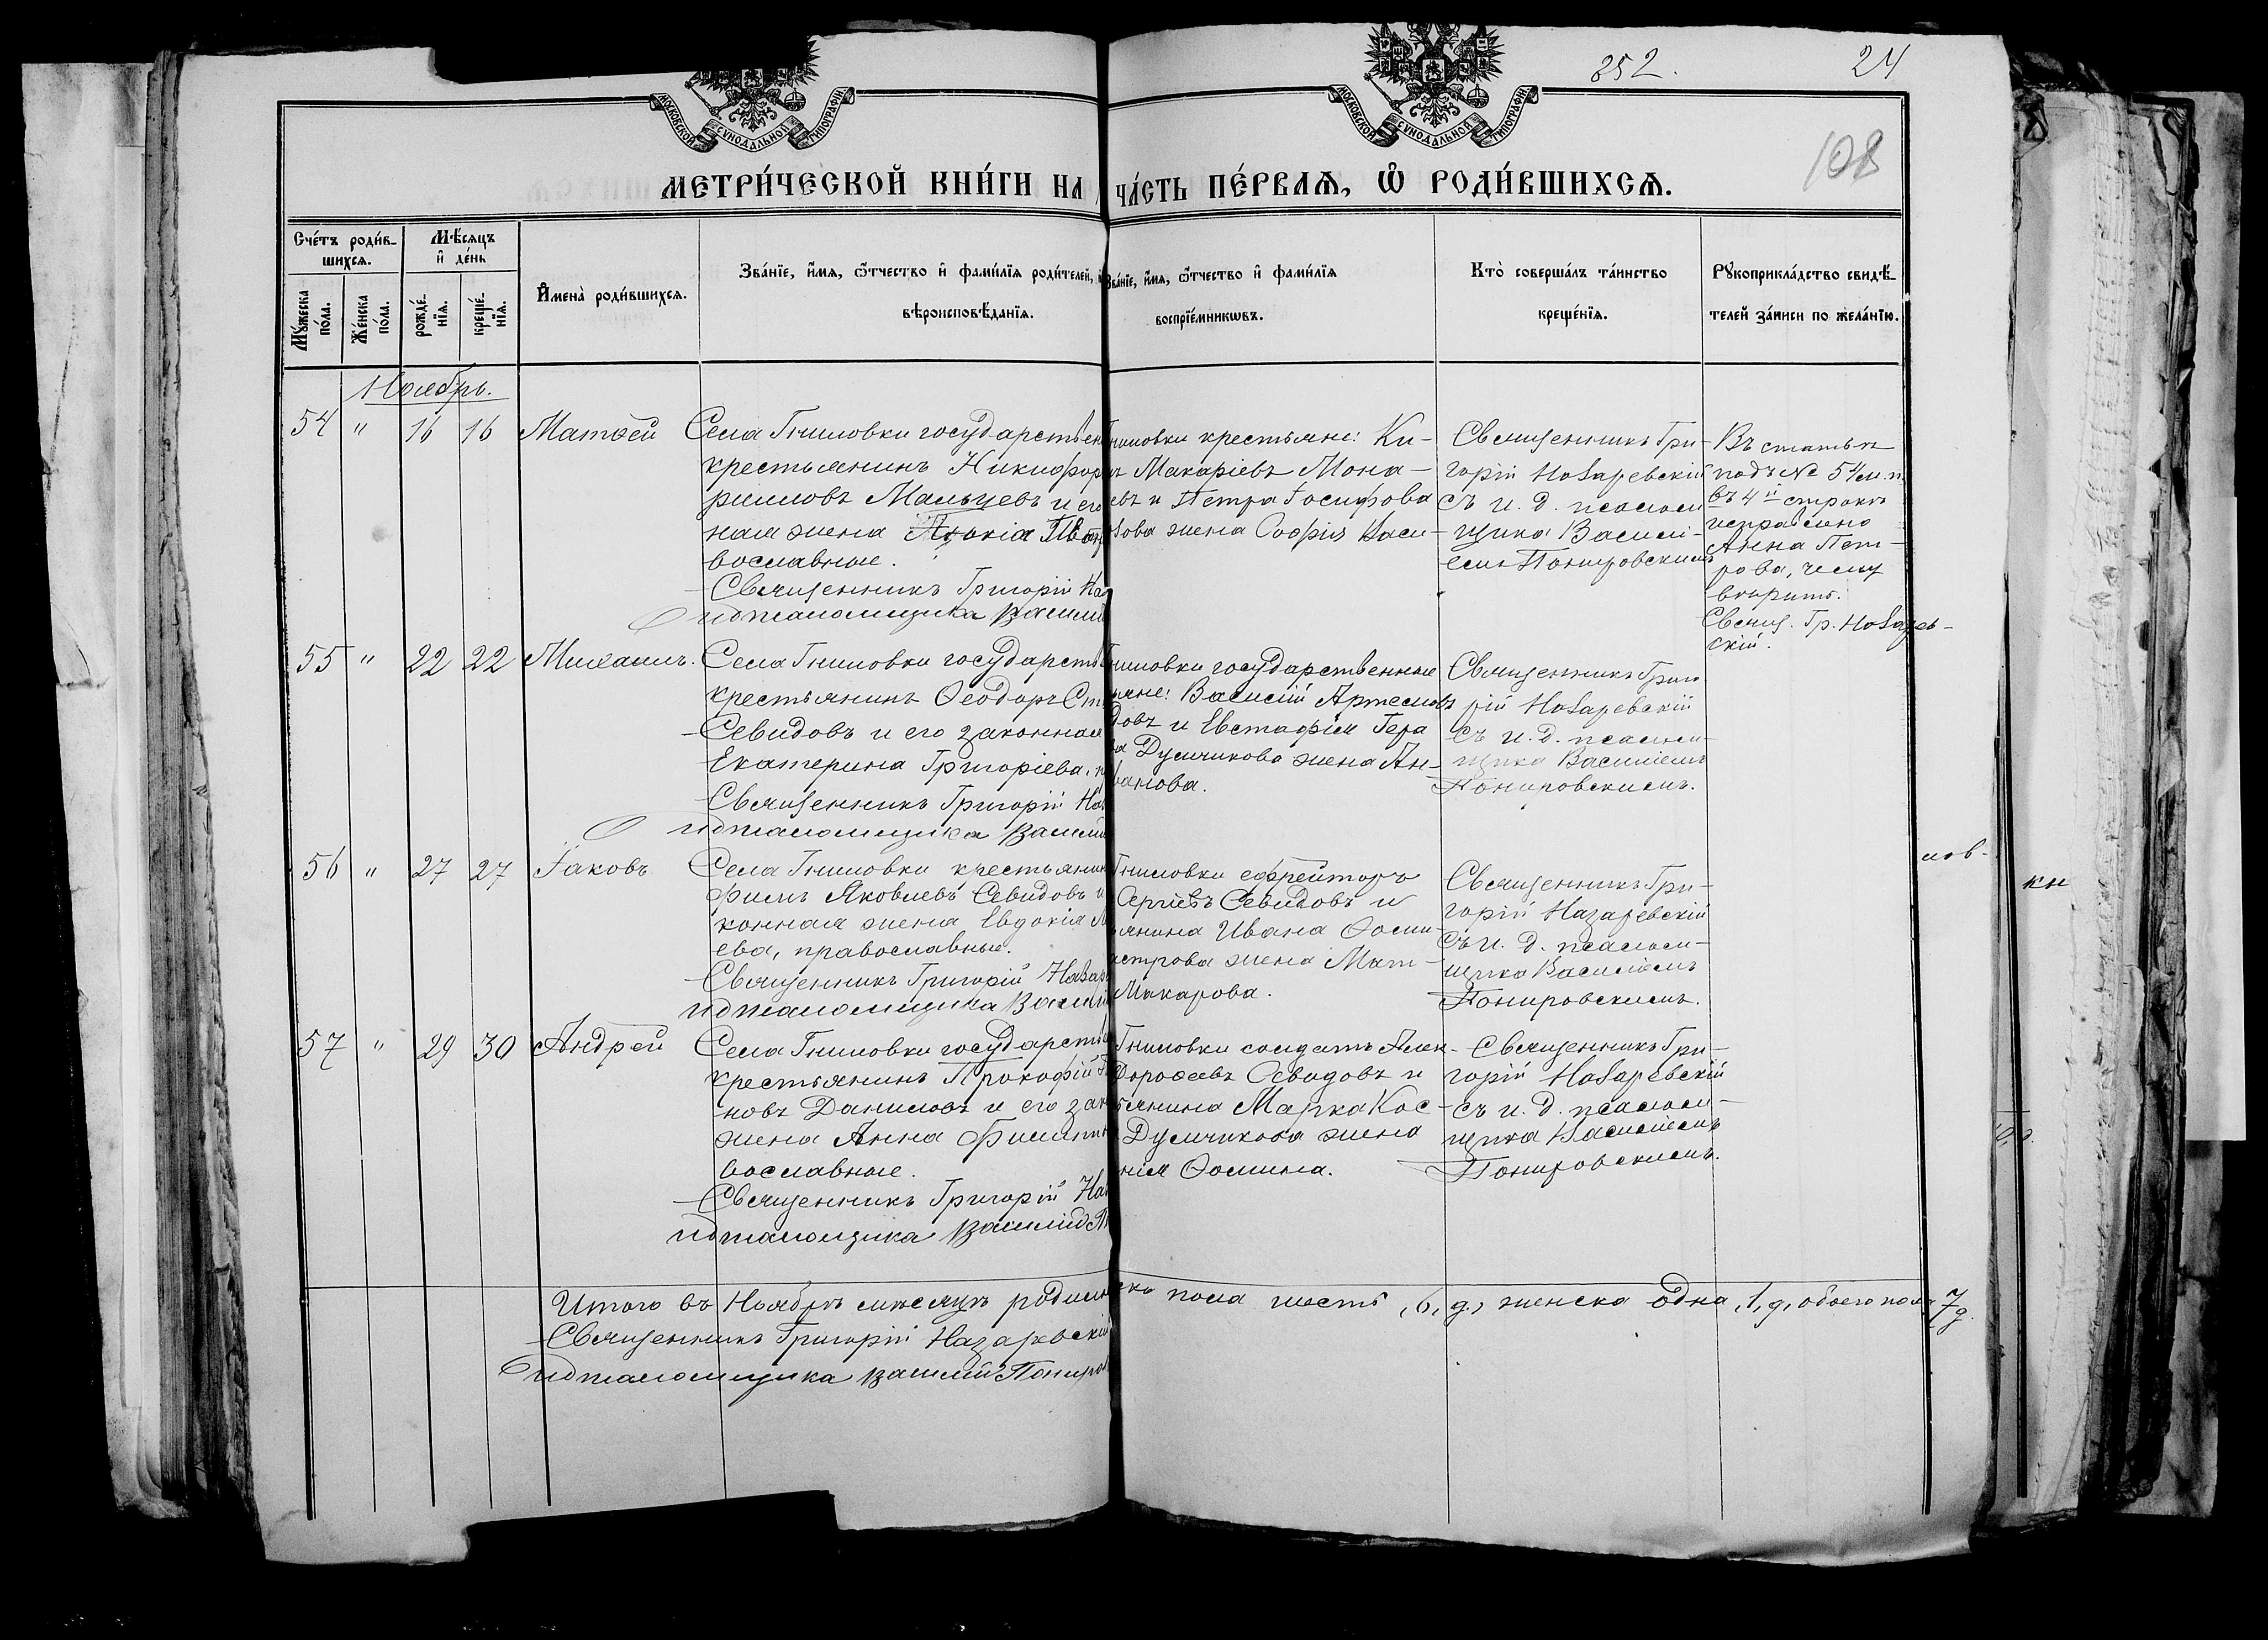 252.
24
108
МОСКОВСКОЙ СѴНОДАЛЬНОЙ ТИПОГРАФІИ
МОСКОВСКОЙ СѴНОДАЛЬНОЙ ТИПОГРАФІИ
МЕТРИ́ЧЕСКОЙ КНИ́ГИ НА
ЧА́СТЬ ПЕ́РВАѦ, Ѡ РОДИ́ВШИХСѦ.
Сче́тъ роди́в-
шихсѧ.
Мꙋ́жеска по́ла.
Же́нска по́ла.
Мѣ́сѧцъ
и҆ де́нь
рожде́-
нїѧ.
креще́-
нїѧ.
И҆мена̀ роди́вшихсѧ.
Зва́нїе, и҆́мѧ, ѻ҆́тчество и҆ фами́лїѧ роди́телей,
вѣроисповѣ́данїѧ.
Зва́нїе, и҆́мѧ, ѻ҆́тчество и҆ фами́лїѧ
воспрїе́мникѡвъ.
Кто̀ соверша́лъ та́инство
креще́нїѧ.
Рꙋкоприкла́дство свидѣ́-
телей за́писи по жела́нїю.
Ноябрь.
54 " 16 16 Матѳей
Села Гниловки государствен
крестьянинъ Никифор
риловъ Мальцевъ и его
ная жена
вославные.
Священникъ Григорій На
ид псаломщика Васили
Гниловки крестьяне: Ки-
ъ Макаріевъ Мона-
евъ и Петра Іосифова
жена Софія Васи-
Священникъ Гри-
горій Назаревскій
съ и. д. псалом-
щика Василі-
емъ Понировскимъ
Въ статьѣ
подъ № 54 м. п.
въ 4й строкѣ
исправлено
Анна Пет-
рова, чему
вѣрить.
Свящ. Гр. Назарев-
скій.
55 " 22 22 Михаилъ.
Села Гниловки государств
крестьянинъ Ѳеодоръ Ст
Севидовъ и его законная
Екатерина Григоріева,
Священникъ Григорій На
ид псаломщика Васили
Гниловки государственные
яне: Василій Артемовъ
довъ и Евстафія Гера
ва Думчикова жена Ан-
ванова.
Священникъ Григо
рій Назаревскій
съ и. д. псалом-
щика Василіемъ
Понировскимъ.
56 " 27 27 Іаковъ
Села Гниловки крестьянин
фимъ Яковлевъ Севидовъ и
конная жена Евдокія М
ева, православные.
Священникъ Григорій Назар
ид псаломщика Васили
Гниловки ефрейторъ
Сергіевъ Севидовъ и
янина Ивана Ѳоми
етрова жена Мат-
Макарова.
Священникъ Гри-
горій Назаревскій
съ и. д. псалом-
щика Василіемъ
Понировскимъ.
57 " 29 30 Андрей
Села Гниловки государств
крестьянинъ Прокофій
новъ Даниловъ и его зак
жена Анна Филипп
вославные.
Священникъ Григорій На
ид псаломщика Василій П
Гниловки солдатъ Алек-
Дороѳеевъ Севидовъ и
янина Марка Кос-
Думчикова жена
нія Ѳомина.
Священникъ Гри-
горій Назаревскій
съ и. д. псалом-
щика Василіемъ
Понировскимъ.
лов-
кн
Итого въ Ноябрѣ мѣсяцѣ родило
ско пола шесть, 6, д., женска одна, 1, д, обоего пола 7 д.
Священникъ Григорій Назаревскій
ид псаломщика Василій Пониров